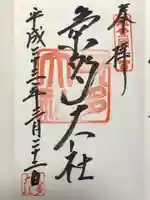 奉拝
氣多大社
平成二十三年三月二十二日